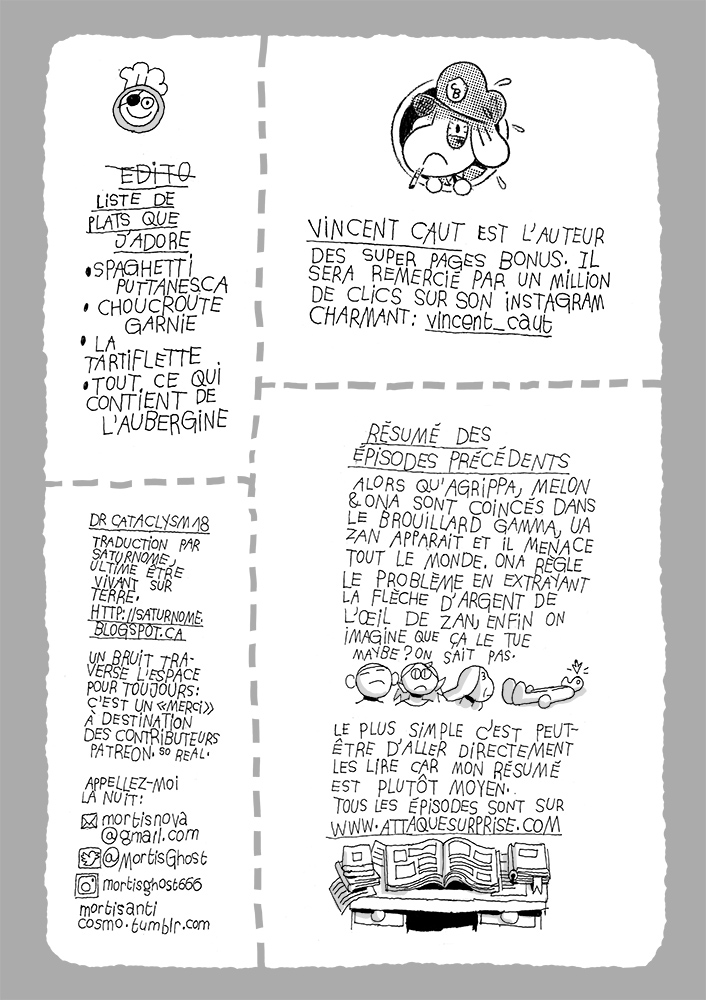 EDITO
LISTE DE
PLATS QUE
J'ADORE
• SPAGHETTI
PUTTANESCA
• CHOUCROUTE
GARNIE
• LA
TARTIFLETTE
• TOUT CE QUI
CONTIENT DE
L'AUBERGINE
CB
VINCENT CAUT EST L'AUTEUR
DES SUPER PAGES BONUS. IL
SERA REMERCIÉ PAR UN MILLION
DE CLICS SUR SON INSTAGRAM
CHARMANT: vincent_caut
DR CATACLYSM 18
TRADUCTION PAR
SATURNOME,
ULTIME ÊTRE
VIVANT SUR
TERRE.
HTTP://SATURNOME.
BLOGSPOT.CA
UN BRUIT TRA-
VERSE L'ESPACE
POUR TOUJOURS:
C'EST UN «MERCI»
À DESTINATION
DES CONTRIBUTEURS
PATREON. SO REAL.
APPELLEZ-MOI
LA NUIT:
mortisnova
@gmail.com
@MortisGhost
mortisghost666
mortisanti
cosmo.tumblr.com
RÉSUMÉ DES
ÉPISODES PRÉCÉDENTS
ALORS QU'AGRIPPA, MELON
& ONA SONT COINCÉS DANS
LE BROUILLARD GAMMA, UA
ZAN APPARAIT ET IL MENACE
TOUT LE MONDE. ONA RÈGLE
LE PROBLÈME EN EXTRAYANT
LA FLÈCHE D'ARGENT DE
L'ŒIL DE ZAN, ENFIN ON
IMAGINE QUE ÇA LE TUE
MAYBE? ON SAIT PAS.
LE PLUS SIMPLE C'EST PEUT-
ÊTRE D'ALLER DIRECTEMENT
LES LIRE CAR MON RÉSUMÉ
EST PLUTÔT MOYEN.
TOUS LES ÉPISODES SONT SUR
WWW.ATTAQUESURPRISE.COM